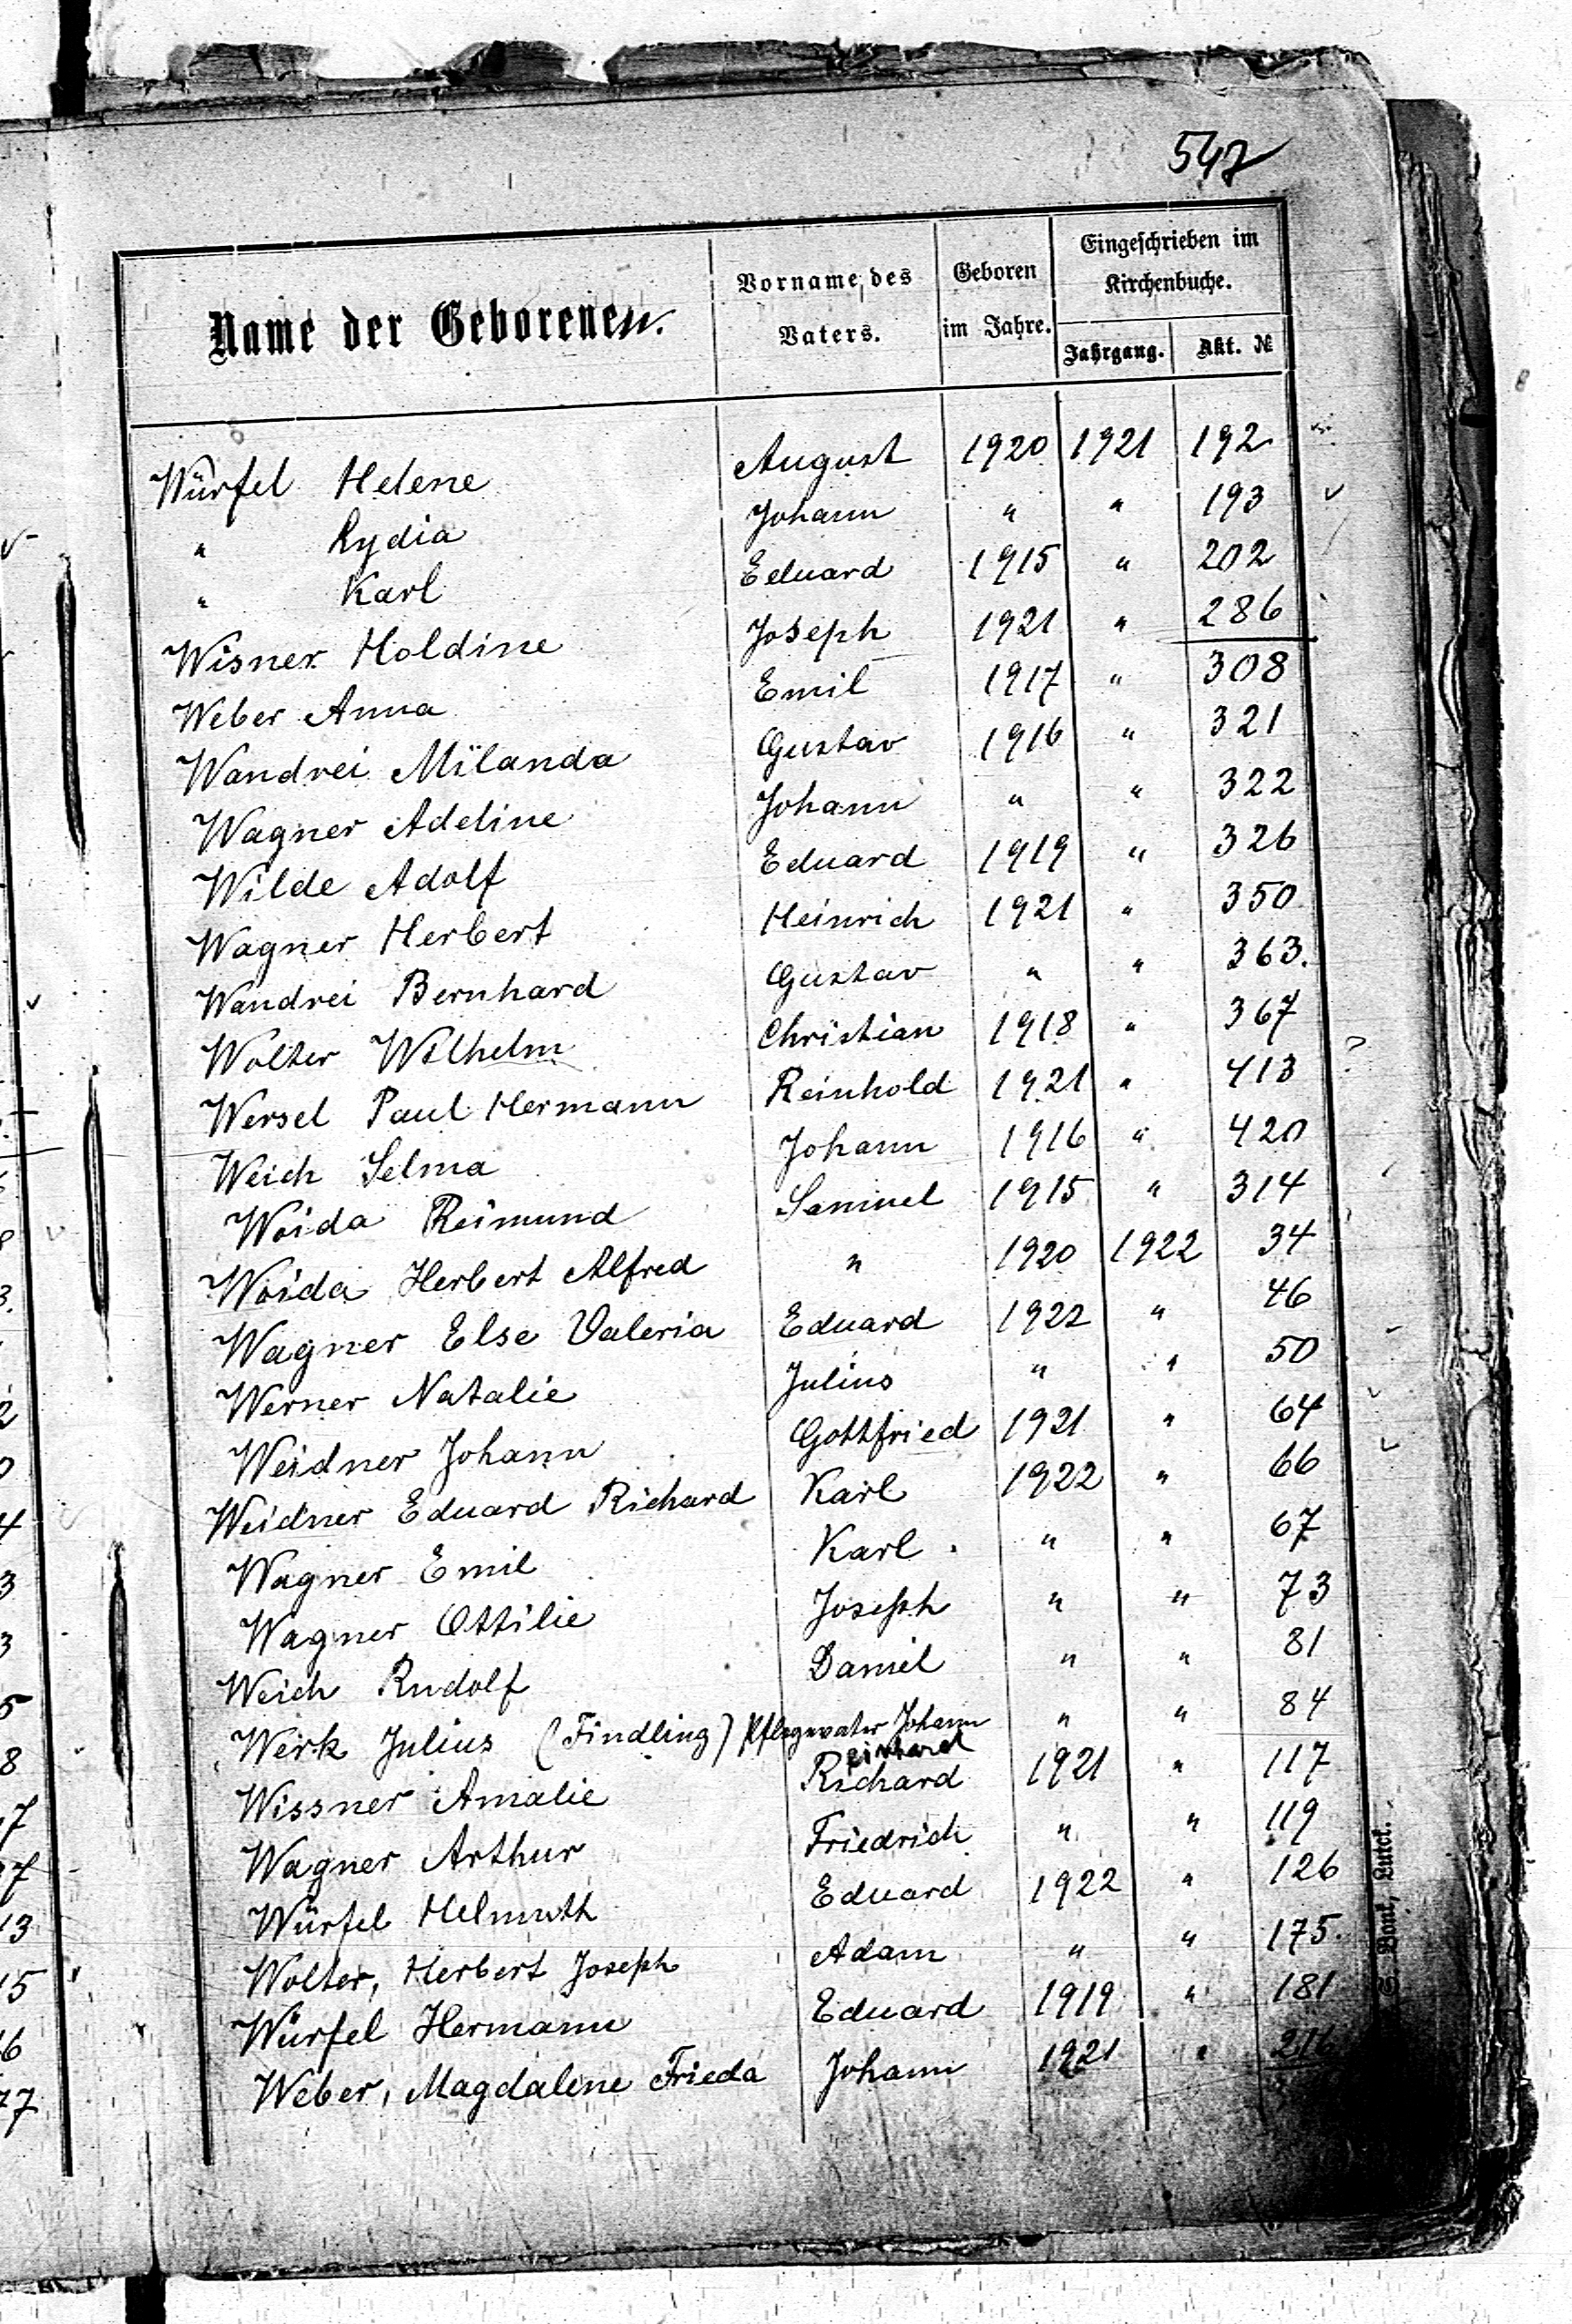 547
Name der Geborenen. Vorname des Vaters. Geboren im Jahre. Eingeschrieben im Kirchenbuche.
Jahrgang. Akt. №
Würfel Helene August 1920 1921 192
" Lydia Johann " " 193
" Karl Eduard 1915 " 202
Wisner Holdine Joseph 1921 " 286
Weber Anna Emil 1917 " 308
Wandrei Milanda Gustav 1916 " 321
Wagner Adeline Johann " " 322
Wilde Adolf Eduard 1919 " 326
Wagner Herbert Heinrich 1921 " 350
Wandrei Bernhard Gustav " " 363.
Wolter Wilhelm Christian 1918 " 367
Wersel Paul Hermann Reinhold 1921 " 413
Weich Selma Johann 1916 " 420
Woida Reimund Samuel 1915 " 314
Woida Herbert Alfred " 1920 1922 34
Wagner Else Valeria Eduard 1922 " 46
Werner Natalie Julius " " 50
Weidner Johann Gottfried 1921 " 64
Weidner Eduard Richard Karl 1922 " 66
Wagner Emil Karl. " " 67
Wagner Ottilie Joseph " " 73
Weich Rudolf Daniel " " 81
Werk Julius (Findling) Pflegevater Johann " " 84
Wissner Amalie Richard 1921 " 117
Wagner Arthur Friedrich " " 119
Würfel Helmuth Eduard 1922 " 126
Wolter, Herbert Joseph Adam " " 175.
Würfel Hermann Eduard 1919 " 181
Weber, Magdalene Frieda Johann 1921 " 216